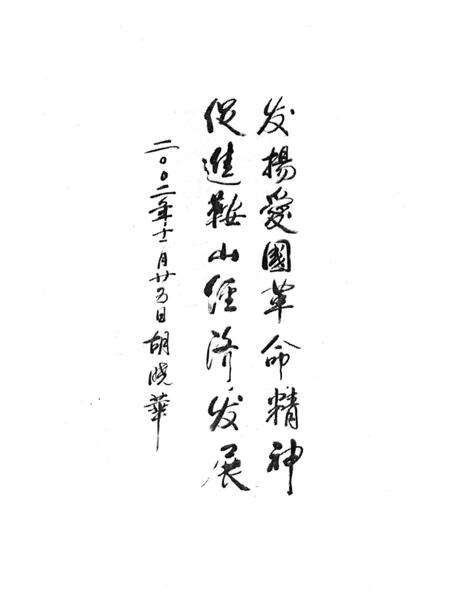 发揚爱國革命精神
促進鞍山経济发展
二〇〇二年十一月廿五日胡晓華